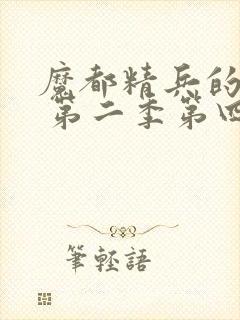 魔都精兵的
第二季第四
筆輕語